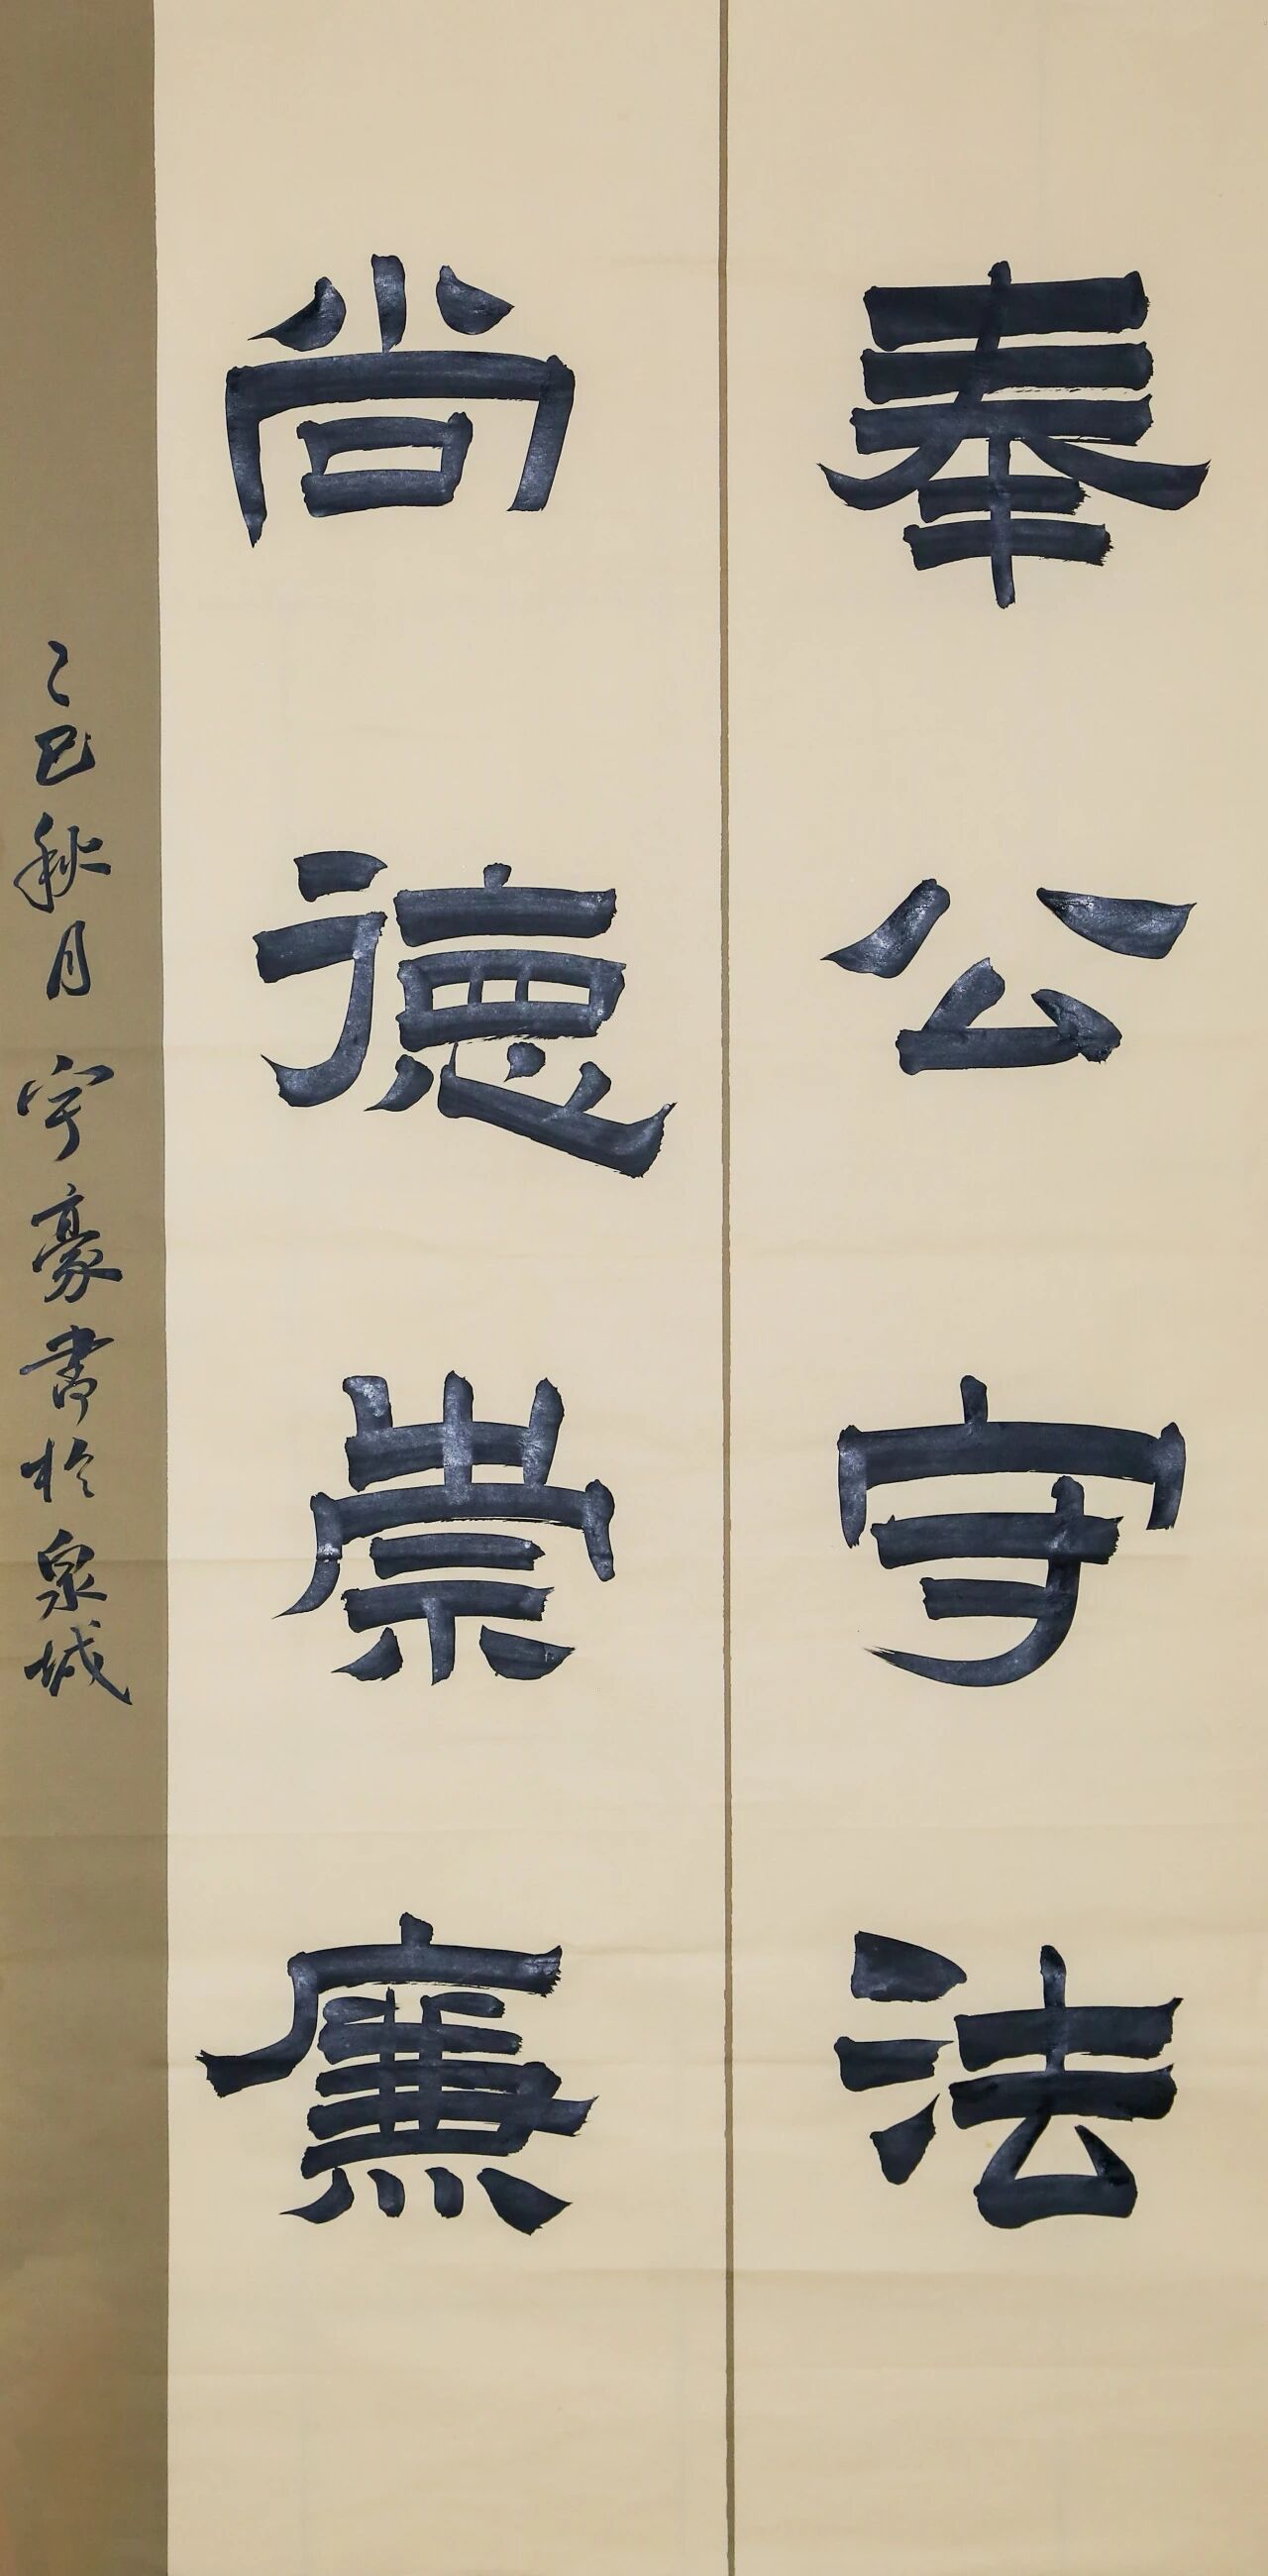 奉公守法
尚德崇廉
乙巳秋月宇豪书於泉城